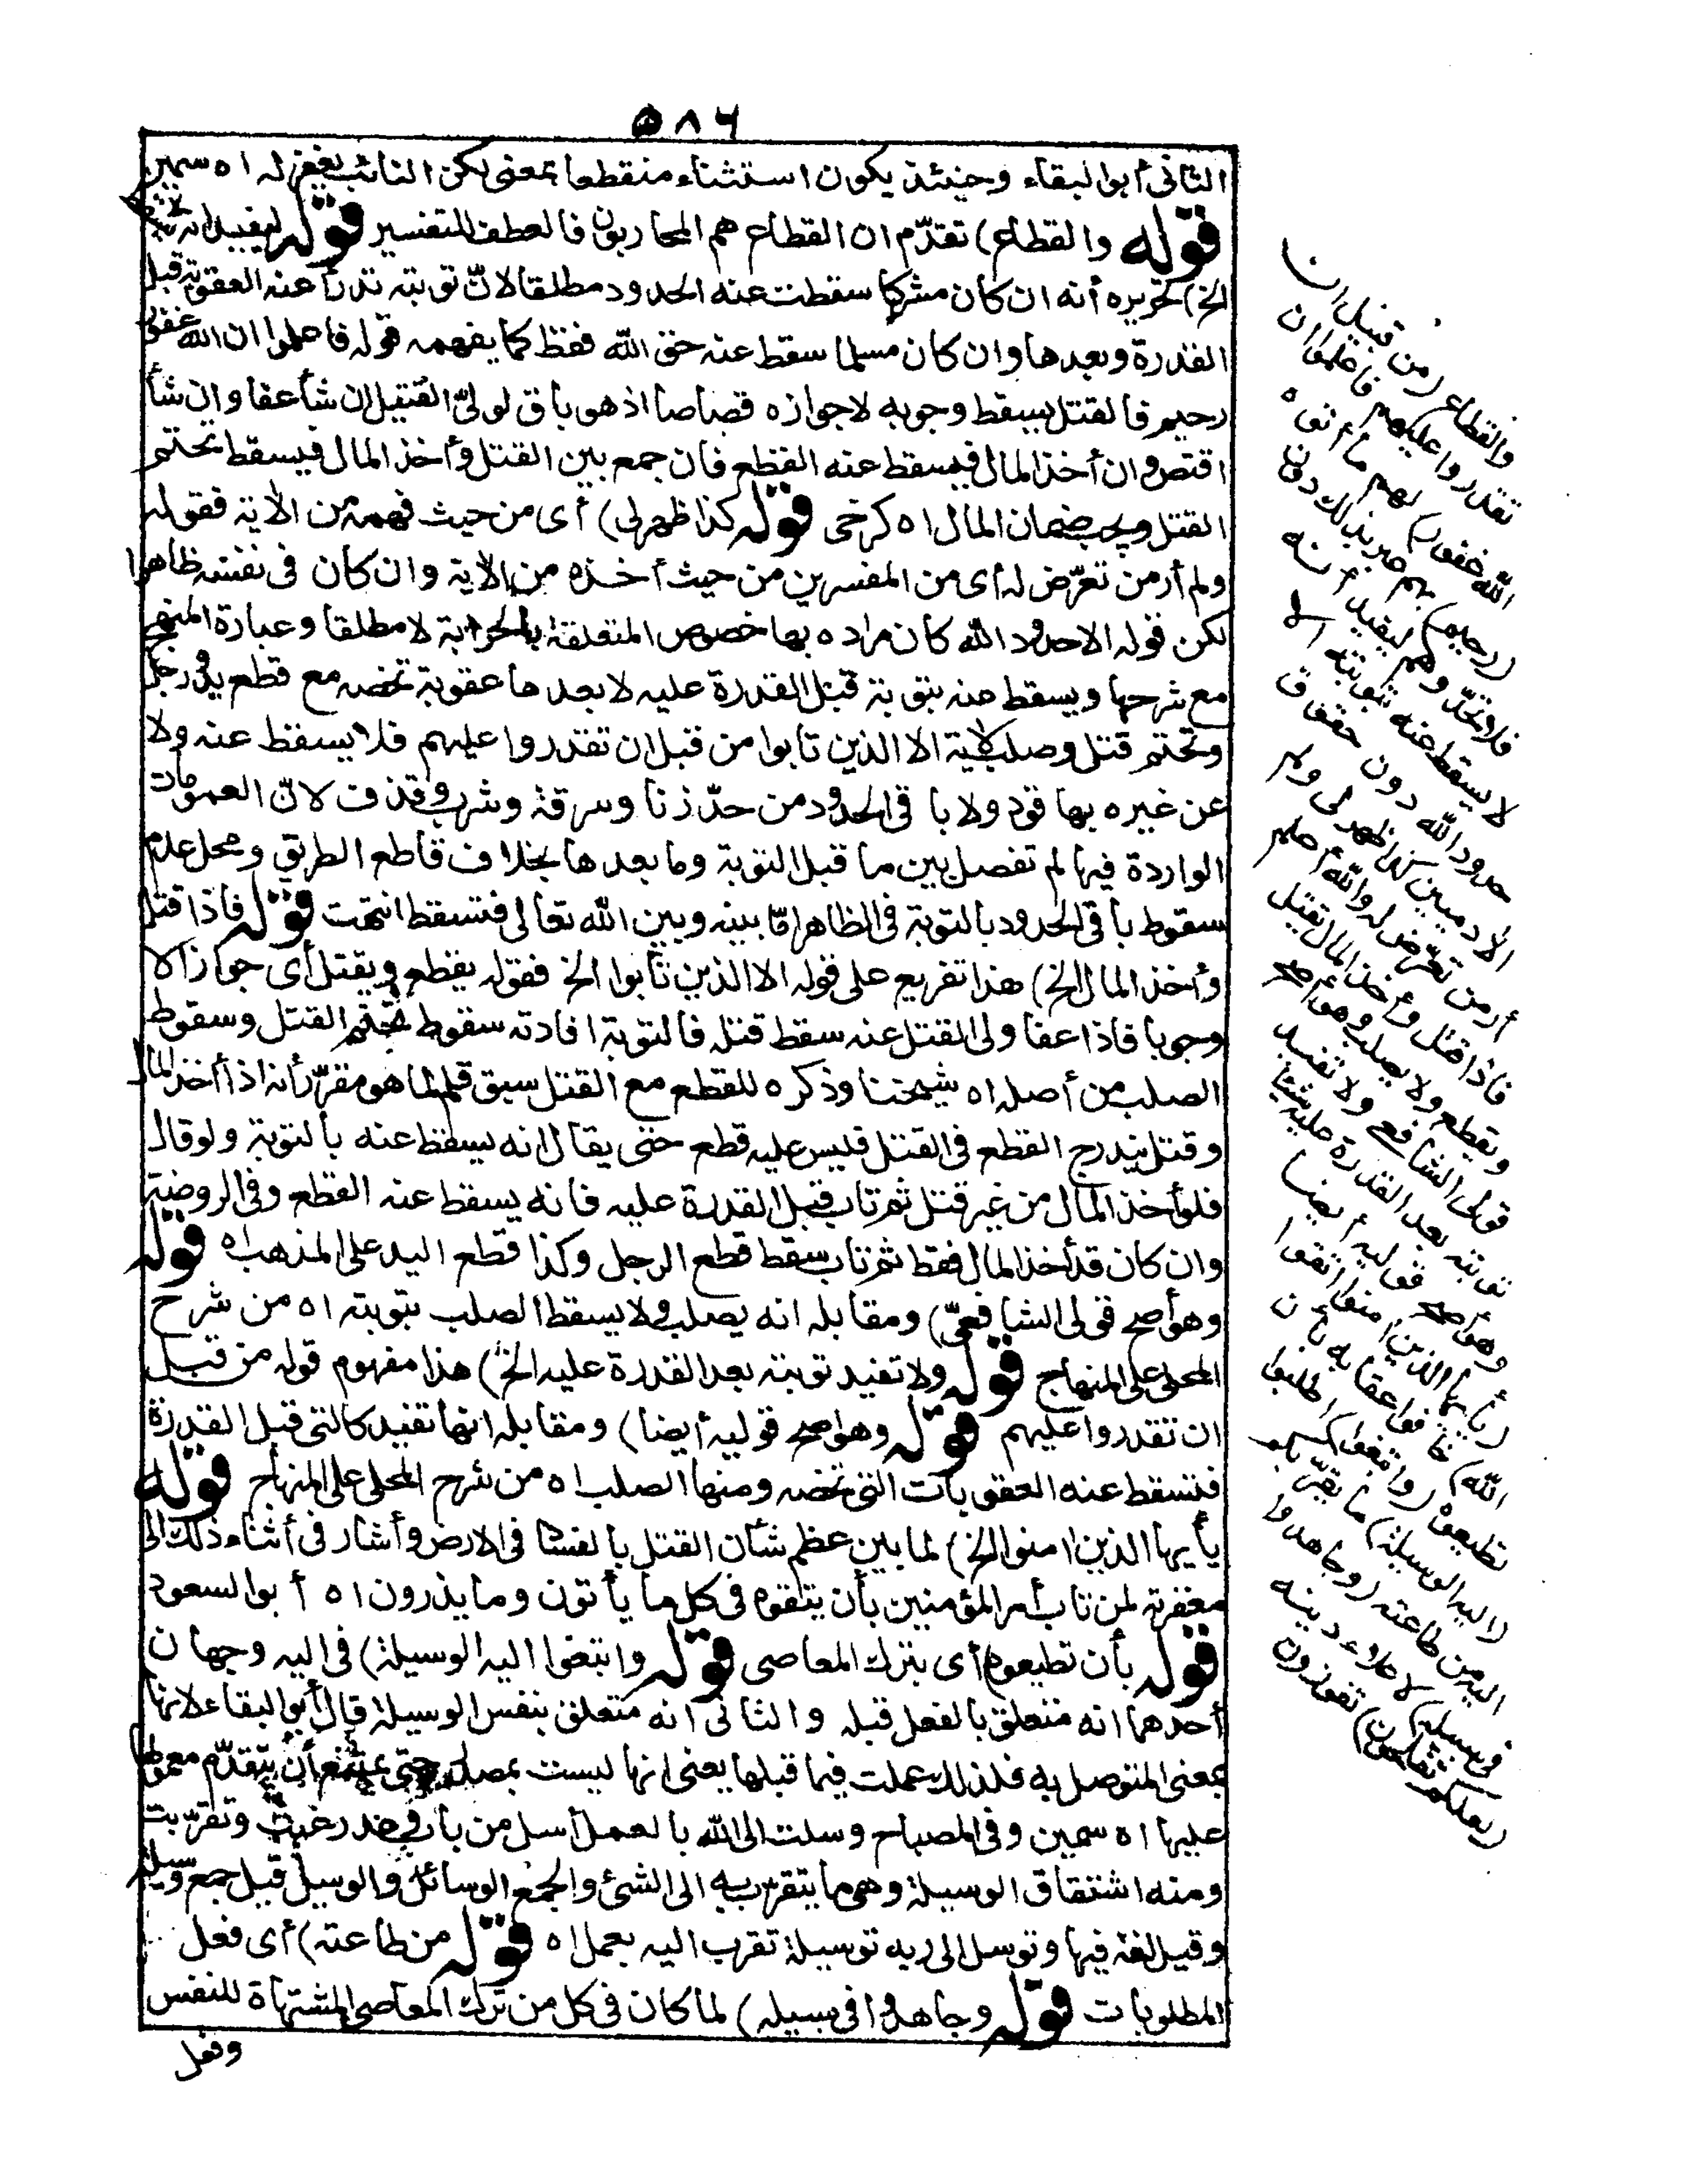 ٥٨٦
الثانى أبو البقاء وحينئذ يكون استثناء منقطعا بمعنى لكن التائب يغفر له اه سمين
قوله والقطاع) تقدّم ان القطاع هم المحاربون فالعطف للتفسير قوله ليفيد انه
الخ) تحريره أنه ان كان مشركا سقطت عنه الحدود مطلقا لانّ توبته تدرأ عنه العقوبة قبل
القدرة وبعدها وان كان مسلما سقط عنه حق الله فقط كما يفهمه قوله فاعلموا ان الله غفور
رحيم فالقتل يسقط وجوبه لا جوازه قصاصا اذ هو باق لولىّ القتيل ان شأ عفا وان شأ
اقتص وان أخذ المال فيسقط عنه القطع فان جمع بين القتل وأخذ المال فيسقط تحتم
القتل ويجب ضمان المال اه كرخى قوله كذا ظهر لى) أى من حيث فهمه من الأية فقوله
ولم أر من تعرّض له أى من المفسرين من حيث أخذه من الاية وان كان فى نفسه ظاهرا
لكن قوله الاحدود الله كان مراده بها خصوص المتعلقة بالحرابة لا مطلقا وعبارة المنهج
مع شرحها ويسقط عنه بتوبة قبل القدرة عليه لا بعدها عقوبة تخصه مع قطع يد ورجل
وتحتم قتل وصلب لاية الا الذين تابوا من قبل ان تقدروا عليهم فلا يسقط عنه ولا
عن غيره بها قود ولا باقى الحدود من حدّ زنا وسرقة وشرب وقذف لانّ العمومات
الواردة فيها لم تفصل بين ما قبل التوبة وما بعدها بخلاف قاطع الطريق ومحل عدم
سقوط باقى الحدود بالتوبة فى الظاهر امّا بينه وبين الله تعالى فتسقط انتهت قوله فاذا قتل
وأخذ المال الخ) هذا تفريع على قوله الا الذين تابوا الخ فقوله يقطع ويقتل أى جوازا لا
وجوبا فاذا عفا ولى القتل عنه سقط قتله فالتوبة افادته سقوط تحتم القتل وسقوط
الصلب من أصله اه شيخنا وذكره للقطع مع القتل سبق قلم لما هو مقرّر أنه اذا أخذ المال
وقتل يندرج القطع فى القتل فليس عليه قطع حتى يقال انه يسقط عنه بالتوبة ولو قال
فلو أخذ المال من غير قتل ثم تاب قبل القدرة عليه فانه يسقط عنه القطع وفى الروضة
وان كان قد أخذ المال فقط ثم تاب سقط قطع الرجل وكذا قطع اليد على المذهب اه قوله
وهو أصح قولى الشافعىّ) ومقابله انه يصلب ولا يسقط الصلب بتوبته اه من شرح
المحلى على المنهاج قوله ولا تفيد توبته بعد القدرة عليه الخ) هذا مفهوم قوله من قبل
ان تقدروا عليهم قوله وهو اصح قوليه أيضا) ومقابله انها تفيد كالتى قبل القدرة
فتسقط عنه العقوبات التى تخصه ومنها الصلب اه من شرح المحلى على المنهاج قوله
يأيها الذين امنوا الخ) لما بين عظم شأن القتل بالفساد فى الارض وأشار فى أثناء ذلك الى
مغفرته لمن تاب أمر المؤمنين بأن يتقوه فى كل ما يأتون وما يذرون اه أبو السعود
قوله بأن تطيعوه) أى بترك المعاصى قوله وابتغوا اليه الوسيلة) فى اليه وجهان
أحدهما انه متعلق بالفعل قبله والثانى انه متعلق بنفس الوسيلة قال أبو البقاء لانها
بمعنى المتوصل به فلذلك عملت فيما قبلها يعنى انها ليست بمصدر حتى يمتنع أن يتقدّم معمولها
عليها اه سمين وفى المصباح وسلت الى الله بالعمل أسل من باب وعد رغبت وتقرّبت
ومنه اشتقاق الوسيلة وهى ما يتقرّب به الى الشئ والجمع الوسائل والوسيل قيل جمع وسيلة
وقيل لغة فيها وتوسل الى ربه توسيلة تقرب اليه بعمل اه قوله من طاعته) أى فعل
المطلوبات قوله وجاهدوا فى سبيله) لما كان فى كل من ترك المعاصى المشتهاة للنفس
وفعل
والقطاع (من قبل ان
تقدروا عليهم فاعلموا ان
الله غفور) لهم ما أتوه
(رحيم) بهم عبر بذلك دون
فلا تحدّوهم ليفيد أنه
لا يسقط عنه بتوبته الا
حدود الله دون حقوق
الادميين كذا ظهر لى ولم
أر من تعرّض له والله أعلم
فاذا قتل وأخذ المال يقتل
ويقطع ولا يصلب وهو أصح
قولى الشافعى ولا تفيد
توبته بعد القدرة عليه شيئا
وهو أصح قوليه أيضا
(يأيها الذين امنوا اتقوا
الله) خافوا عقابه بأن
تطيعوه (وابتغوا) اطلبوا
(اليه الوسيلة) ما يقرّبكم
اليه من طاعته (وجاهدوا
فى سبيله) لاعلاء دينه
(لعلكم تفلحون) تفوزون